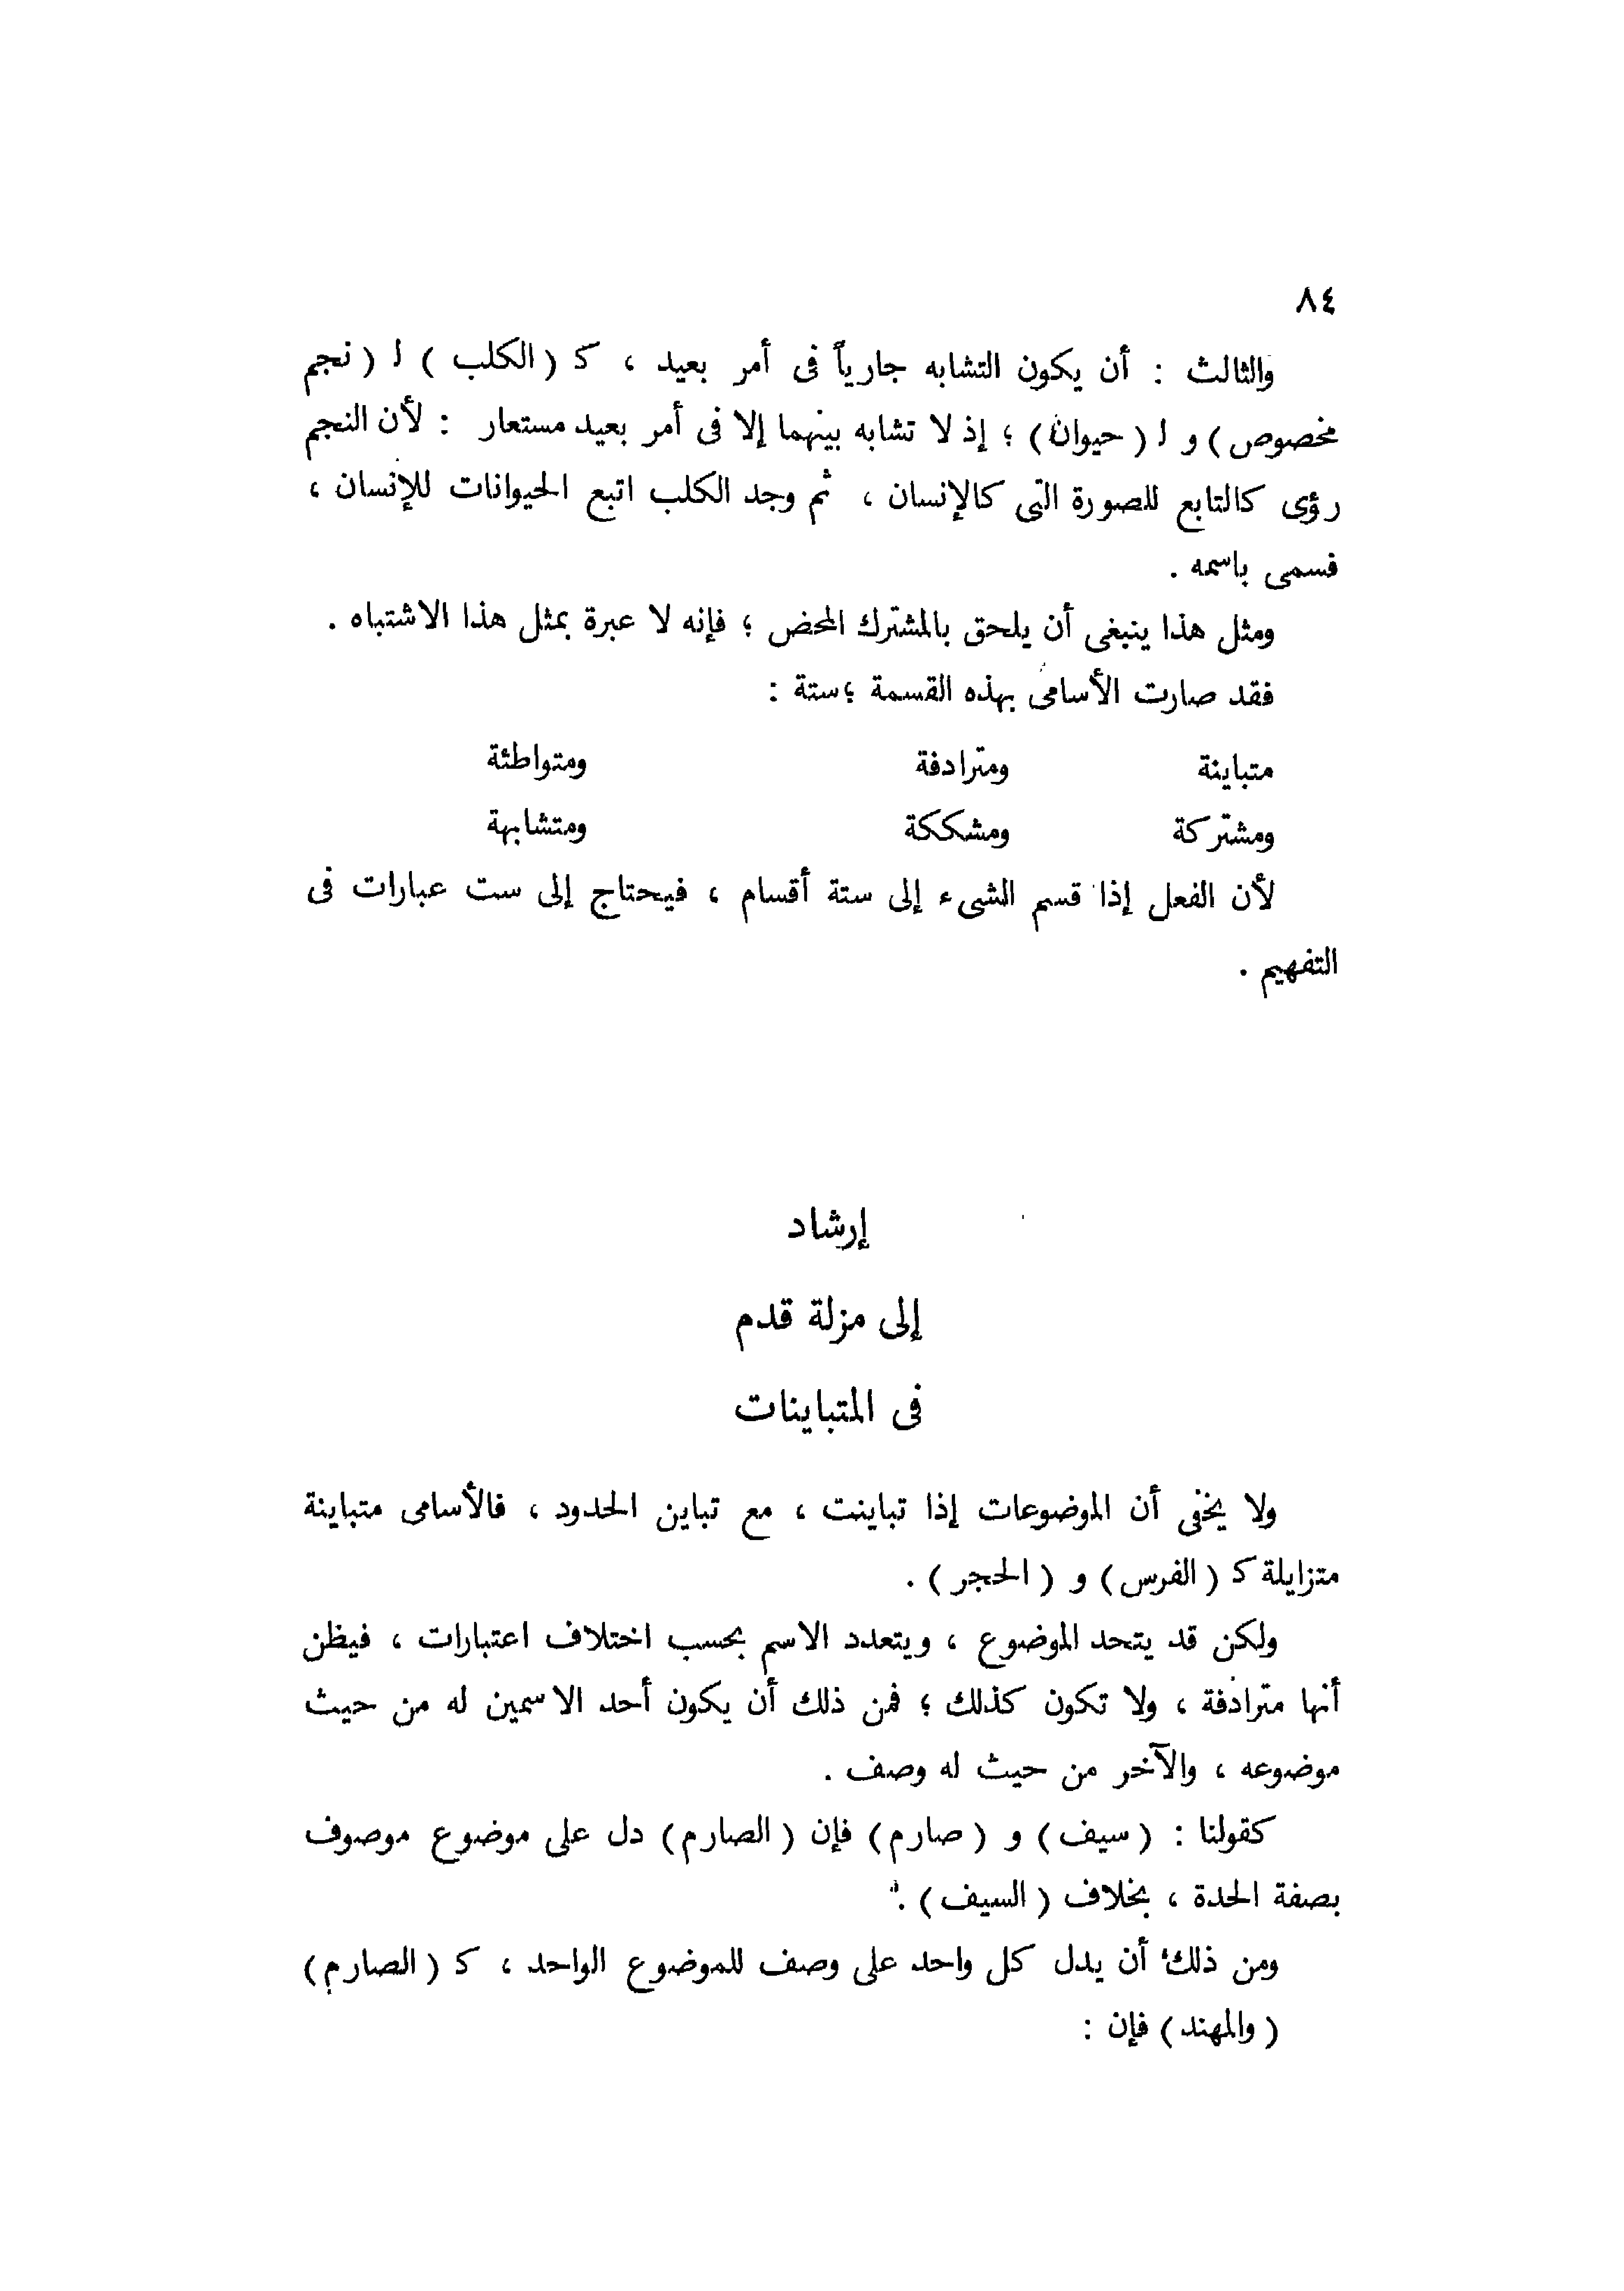 ٨٤
والثالث : أن يكون التشابه جارياً فى أمر بعيد ، كـ ( الكلب ) لـ ( نجم
مخصوص ) و لـ ( حيوان ) ؛ إذ لا تشابه بينهما إلا فى أمر بعيد مستعار : لأن النجم
رؤى كالتابع للصورة التى كالإنسان ، ثم وجد الكلب اتبع الحيوانات للإنسان ،
فسمى باسمه .
ومثل هذا ينبغى أن يلحق بالمشترك المحض ؛ فإنه لا عبرة بمثل هذا الاشتباه .
فقد صارت الأسامى بهذه القسمة ؛ ستة :
متباينة ومترادفة ومتواطئة
ومشتركة ومشككة ومتشابهة
لأن الفعل إذا قسم الشىء إلى ستة أقسام ، فيحتاج إلى ست عبارات فى
التفهيم .
إرشاد
إلى مزلة قدم
فى المتباينات
ولا يخفى أن الموضوعات إذا تباينت ، مع تباين الحدود ، فالأسامى متباينة
متزايلة كـ ( الفرس ) و ( الحجر ) .
ولكن قد يتحد الموضوع ، ويتعدد الاسم بحسب اختلاف اعتبارات ، فيظن
أنها مترادفة ، ولا تكون كذلك ؛ فمن ذلك أن يكون أحد الاسمين له من حيث
موضوعه ، والآخر من حيث له وصف .
كقولنا : ( سيف ) و ( صارم ) فإن ( الصارم ) دل على موضوع موصوف
بصفة الحدة ، بخلاف ( السيف ) .
ومن ذلك أن يدل كل واحد على وصف للموضوع الواحد ، كـ ( الصارم )
( والمهند ) فإن :